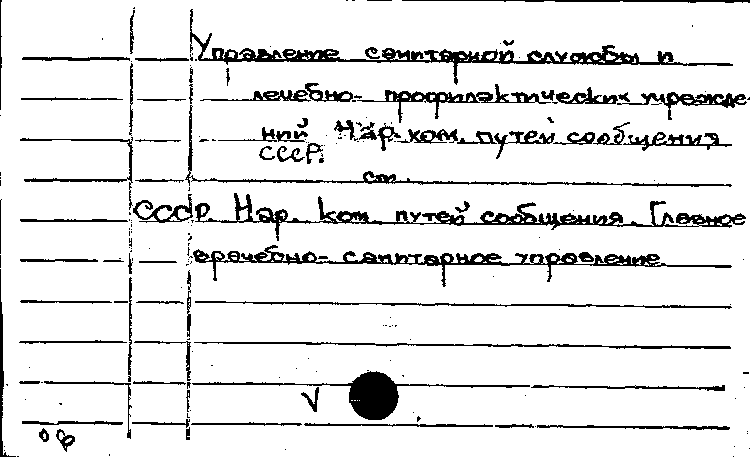 Управление санитарной службы и
лечебно- профилактических учрежде-
ний Нар. ком. путей сообщения
СССР.
см.
СССР. Нар. ком. путей сообщения. Главное
врачебно- санитарное управление.
V